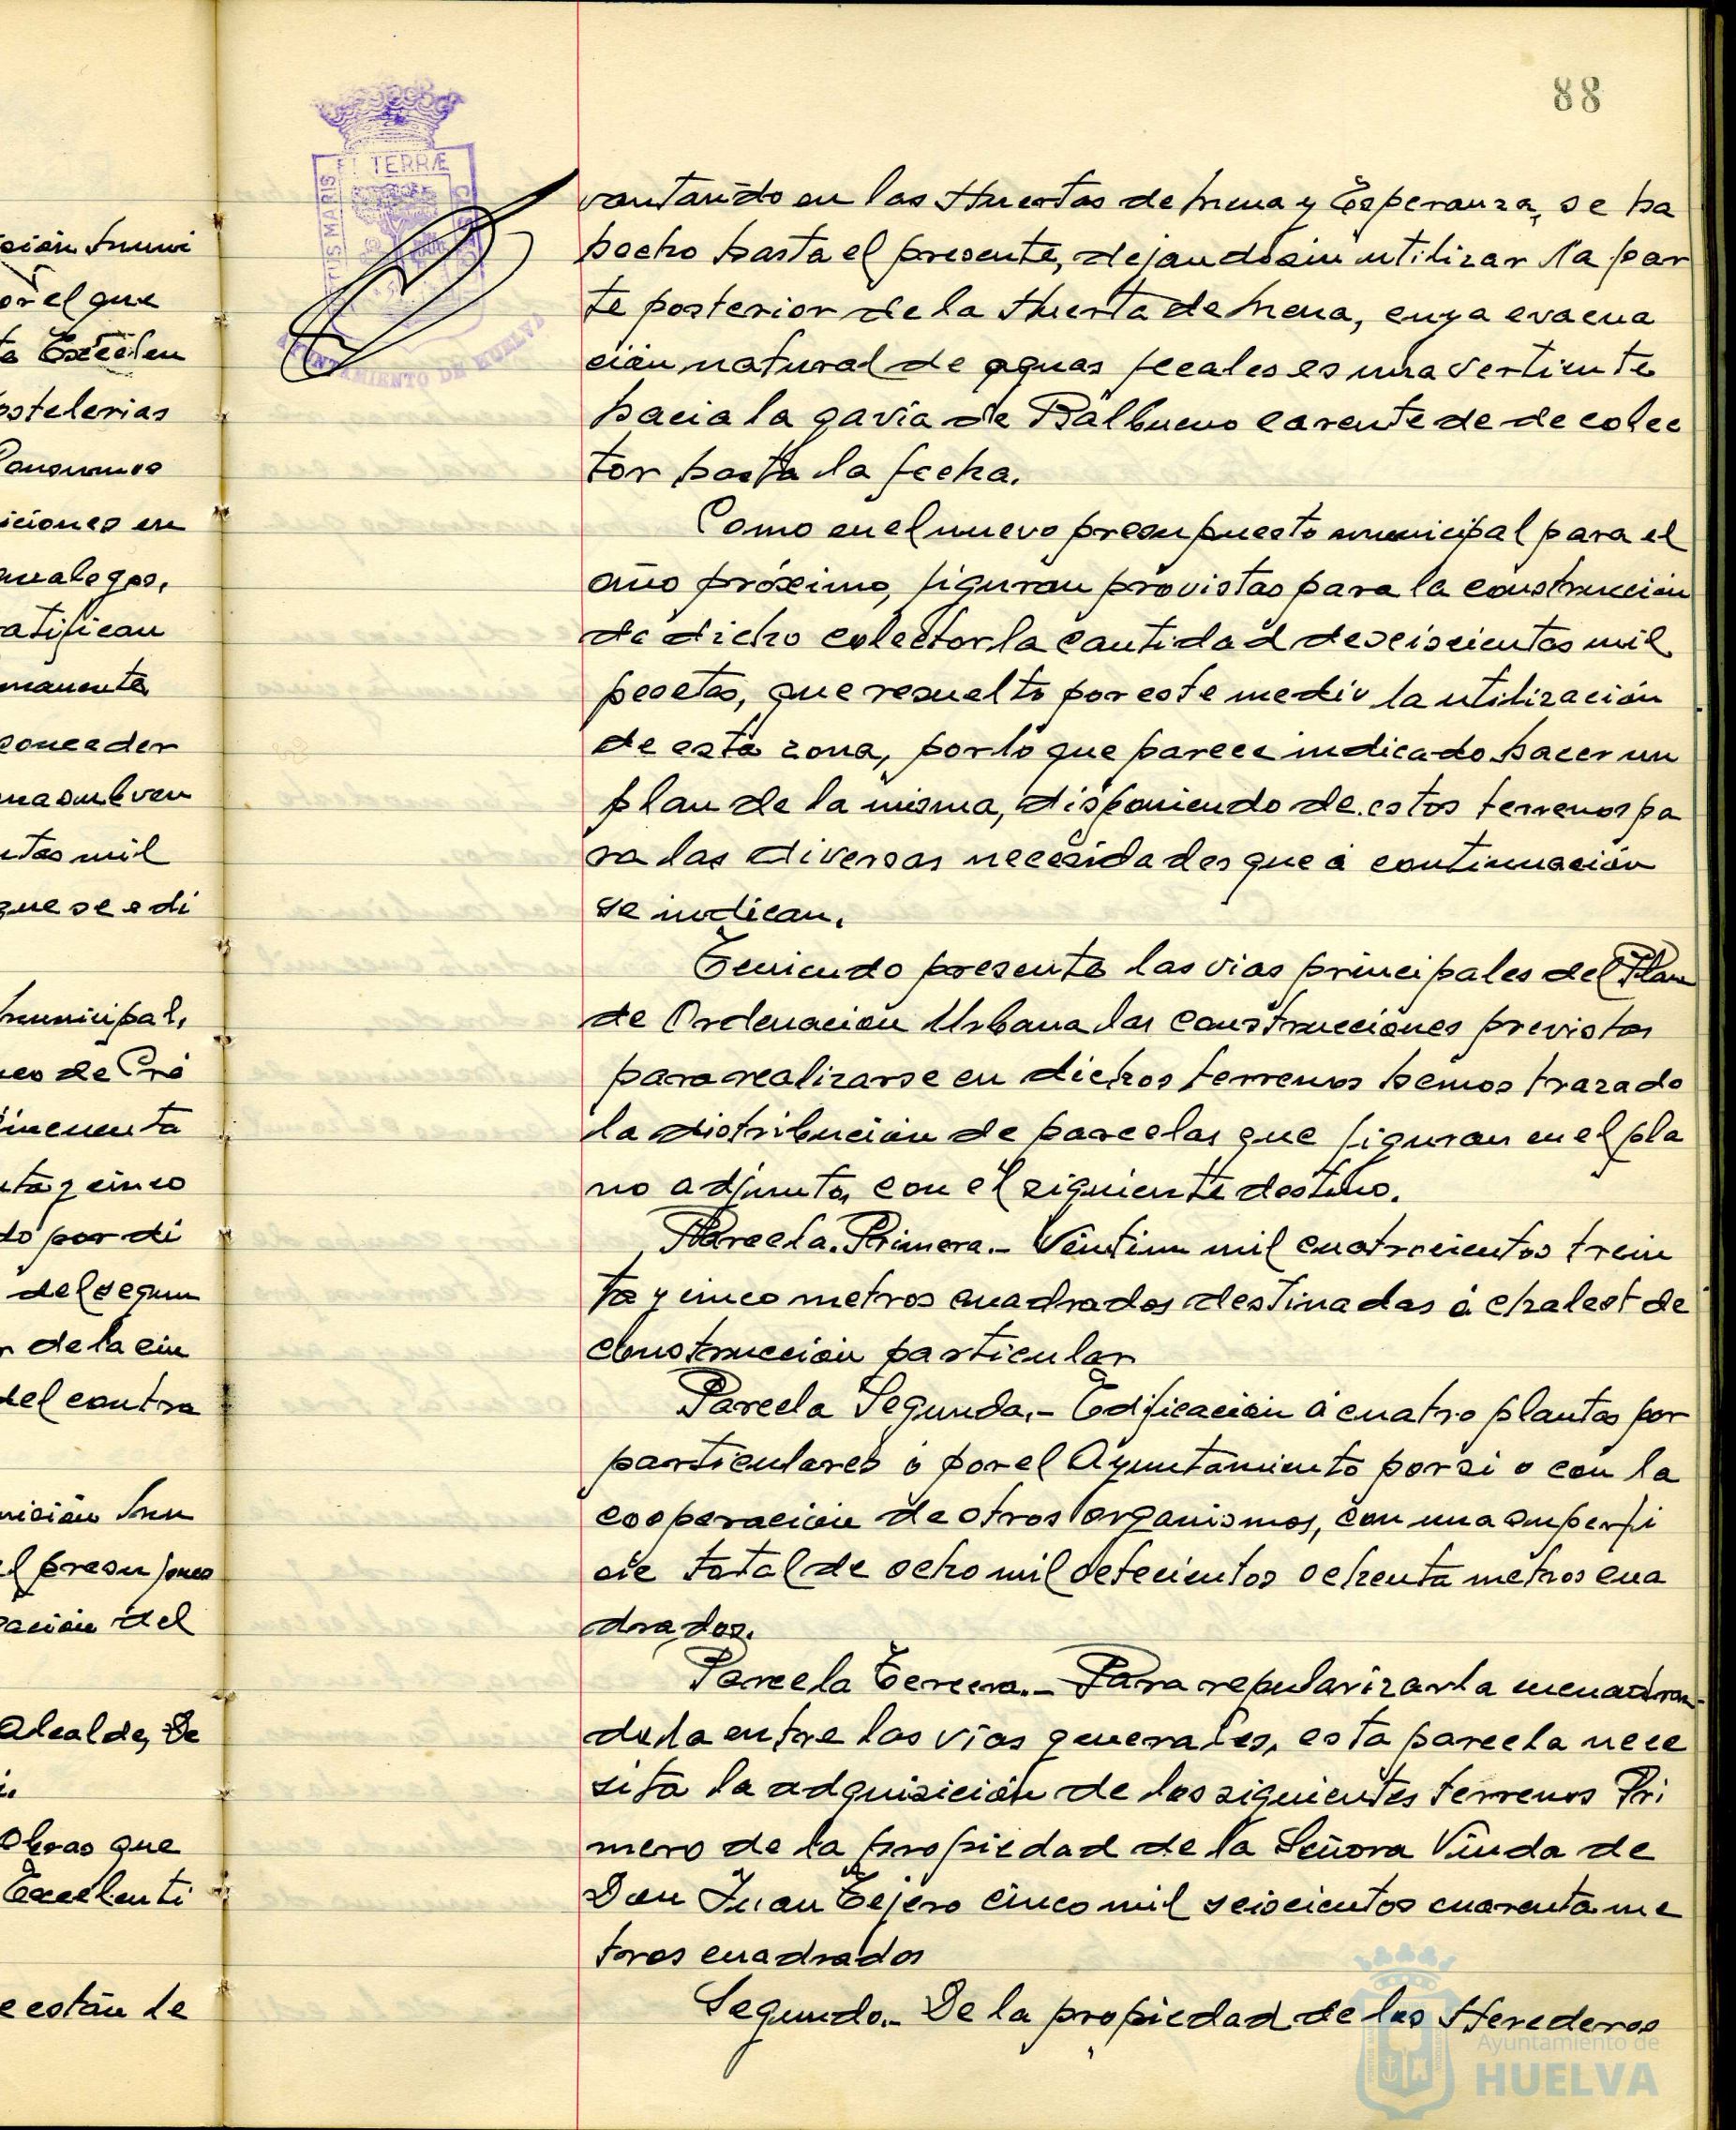 88
ET TERRÆ
TUS MARIS
AYUNTAMIENTO DE HUELVA
vantando en las Huertas de Mena y Esperanza, se ha
hecho hasta el presente, dejando sin utilizar la par
te posterior de la Huerta de Mena, cuya evacua
ción natural de aguas fecales es una vertiente
hacia la gavia de Balbueno carente de de colec
tor hasta la fecha.
Como en el nuevo presupuesto municipal para el
año próximo, figuran provistas para la construcción
de dicho colector la cantidad de seiscientas mil
pesetas, que resuelto por este medio la utilización
de esta zona, por lo que parece indicado hacer un
plan de la misma, disponiendo de estos terrenos pa
ra las diversas necesidades que á continuación
se indican.
Teniendo presente las vias principales del Plan
de Ordenación Urbana las construcciones previstas
para realizarse en dichos terrenos hemos trazado
la distribución de parcelas que figuran en el pla
no adjunto, con el siguiente destino.
Parcela Primera.- Veintiun mil cuatrocientos trein
ta y cinco metros cuadrados destinadas á chalest de
construcción particular
Parcela Segunda.- Edificación á cuatro plantas por
particulares ó por el Ayuntamiento por si o con la
cooperación de otros organismos, con una superfi
cie total de ocho mil setecientos ochenta metros cua
drados.
Parcela Tercera.- Para regularizarla encuadran-
dola entre las vías generales, esta parcela nece
sita la adquisición de los siguientes terrenos Pri
mero de la propiedad de la Señora Viuda de
Don Juan Tejero cinco mil seiscientos cuarenta me
tros cuadrados
Segundo.- De la propiedad de los Herederos
sición Muni
or el que
te Excelen
ostelerias
iciones en
ratifican
manente
conceder
ntas mil
que se e di
Municipal,
cincuenta
nta y cinco
do por di
del segun
r de la cin
del contra
nisión Mun
el presupues
ración del
Alcalde, De
Obras que
Excelenti
e están le
Ayuntamiento de
HUELVA